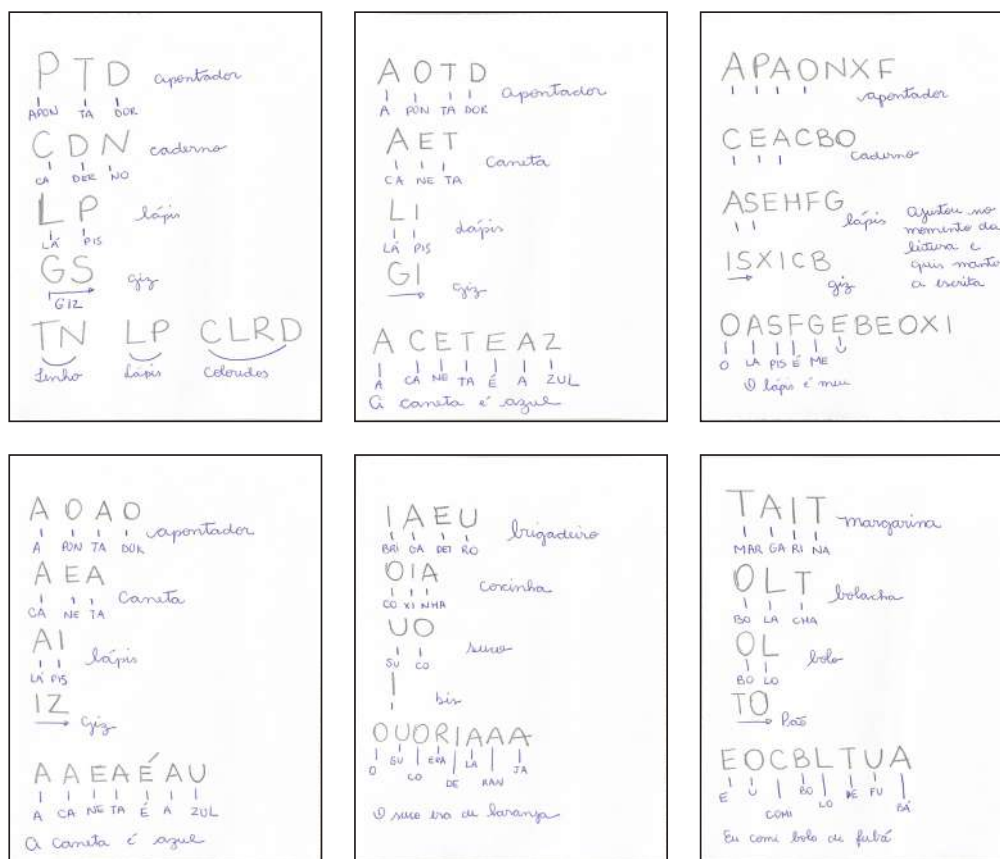 P T D apontador
APON TA DOR
C D N caderno
CA DER NO
L P lápis
LÁ PIS
GS giz
GIZ
TN LP CLRD
Tenho Lápis Coloridos
A O T D apontador
A PON TA DOR
A E T caneta
CA NE TA
L I Lápis
LÁ PIS
GI giz
A C E T E A Z
A CA NE TA É A ZUL
A caneta é azul
APAONXF
apontador
CEACBO
caderno
ASEHFG
lápis ajustou no
momento da
leitura e
quis manter
a escrita
ISXICB
giz
OASFGEBEOXI
O LA PIS É ME U
O lápis é meu
A O A O apontador
A PON TA DOR
A E A caneta
CA NE TA
AI lápis
LÁ PIS
IZ giz
A A E A É A U
A CA NE TA É A ZUL
A caneta é azul
I A E U brigadeiro
BRI GA DEI RO
OIA coxinha
CO XI NHA
UO suco
SU CO
I bis
OUORIAAA
O SU CO ERA DE LA RAN JA
O suco era de laranja
TAIT margarina
MAR GA RI NA
OLT bolacha
BO LA CHA
OL bolo
BO LO
TO Pão
EOCBLTUA
E U COMI BO LO DE FU BÁ
Eu comi bolo de fubá